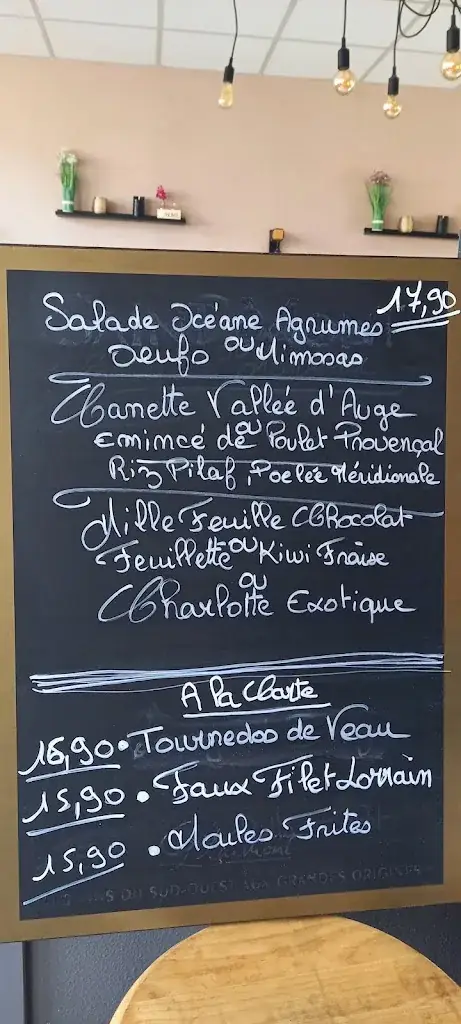 17,90
Salade Océane Agrumes
ou
Oeufs Mimosas
Canette Vallée d'Auge
ou
Emincé de Poulet Provençal
Riz Pilaf, Poelée Méridionale
Mille Feuille Chocolat
ou
Feuilletté Kiwi Fraise
ou
Charlotte Exotique
A la Carte
16,90 • Tournedos de Veau
15,90 • Faux Filet Lorrain
15,90 • Moules Frites
VINS DU SUD-OUEST AUX GRANDES ORIGINES